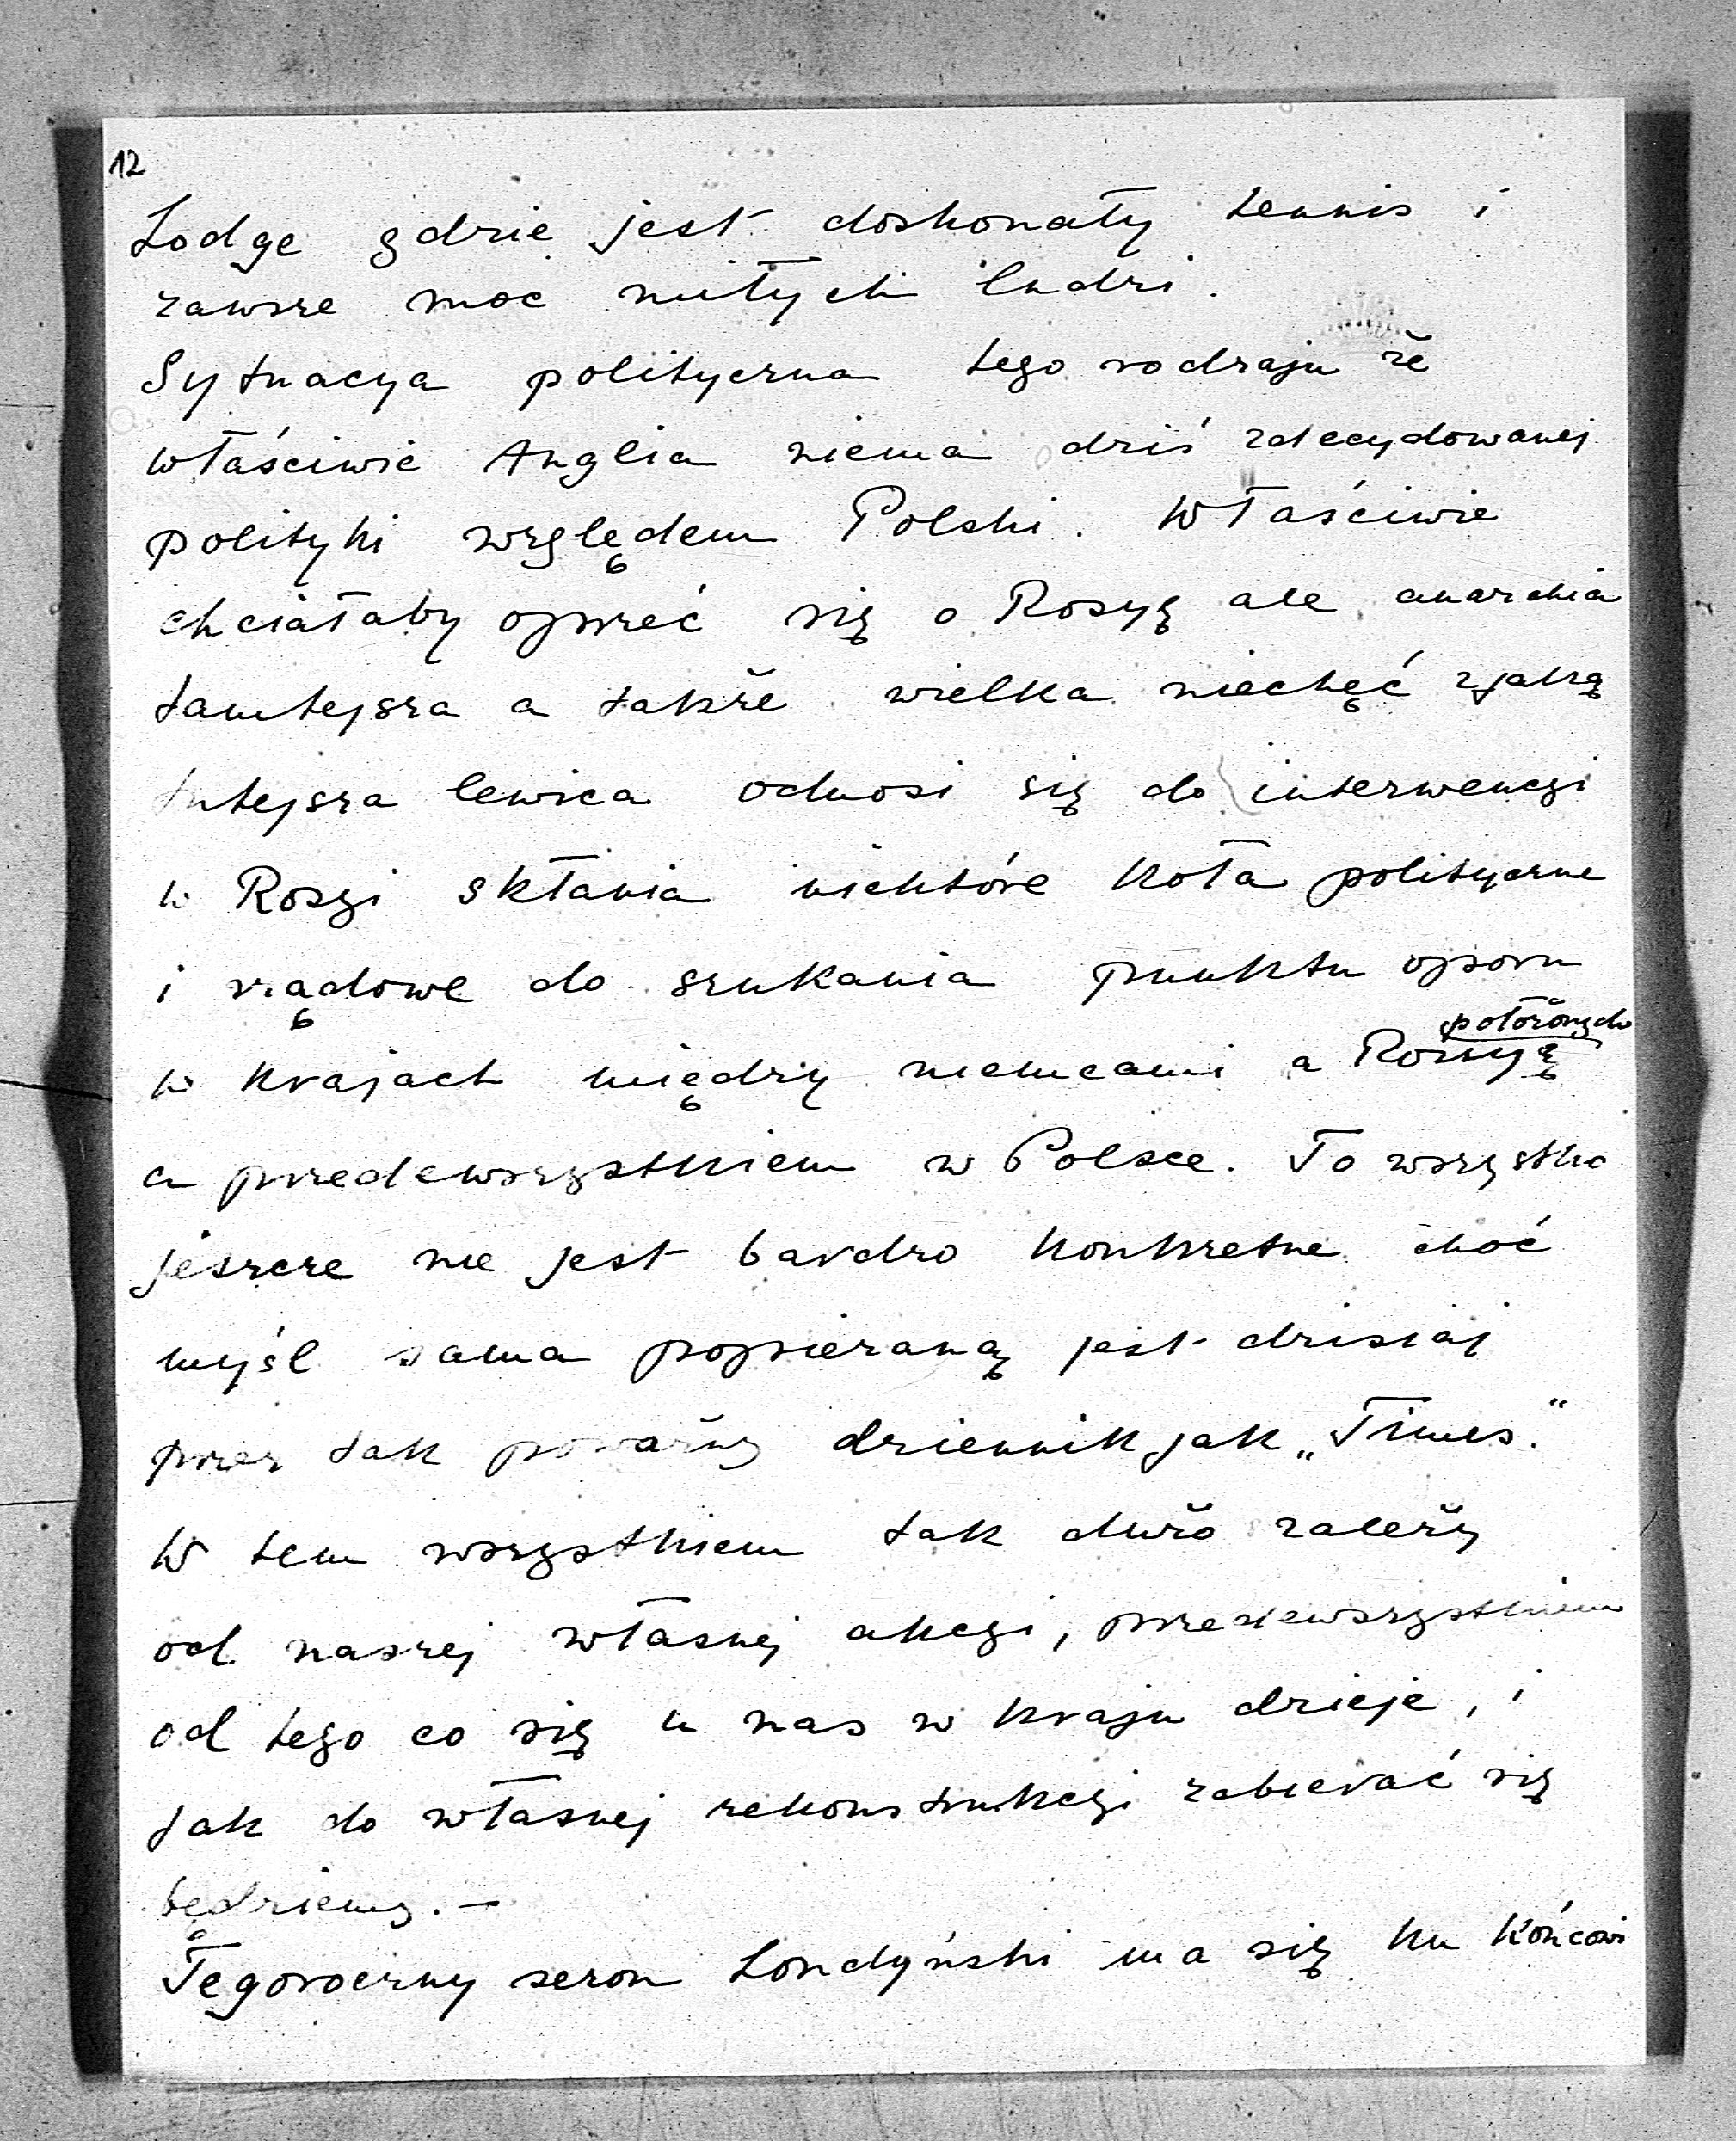 12
Lodge gdzie jest doskonały tennis i
zawsze moc miłych ludzi.
Sytuacya polityczna tego rodzaju że
właściwie Anglia niema dziś zdecydowanej
polityki względem Polski. Właściwie
chciałaby oprzeć się o Rosyę ale anarchia
tamtejsza a także wielka niechęć z jaką
tutejsza lewica odnosi się do interwencyi
w Rosyi skłania niektóre koła polityczne
i rządowe do szukania punktu oporu
położonych
w krajach między niemcami a Rosyą
a przedewszystkiem w Polsce. To wszystko
jeszcze nie jest bardzo konkretne choć
myśl sama popieraną jest dzisiaj
przez tak poważny dziennik jak „Times."
W tem wszystkiem tak dużo zależy
od naszej własnej akcyi, przedewszystkiem
od tego co się u nas w kraju dzieje, i
jak do własnej rekonstrukcyi zabierać się
będziemy. —
Tegoroczny sezon Londyński ma się ku końcowi